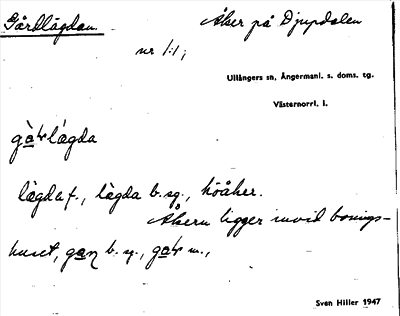 Gårdlägdan. Åker på Djupdalen
nr 1:1;
Ullångers sn, Ångermanl. s. doms. tg.
Västernorrl. l.
lägda f., lägda b. sg., höåker.
Åkern ligger invid bonings-
huset,
Sven Hiller 1947